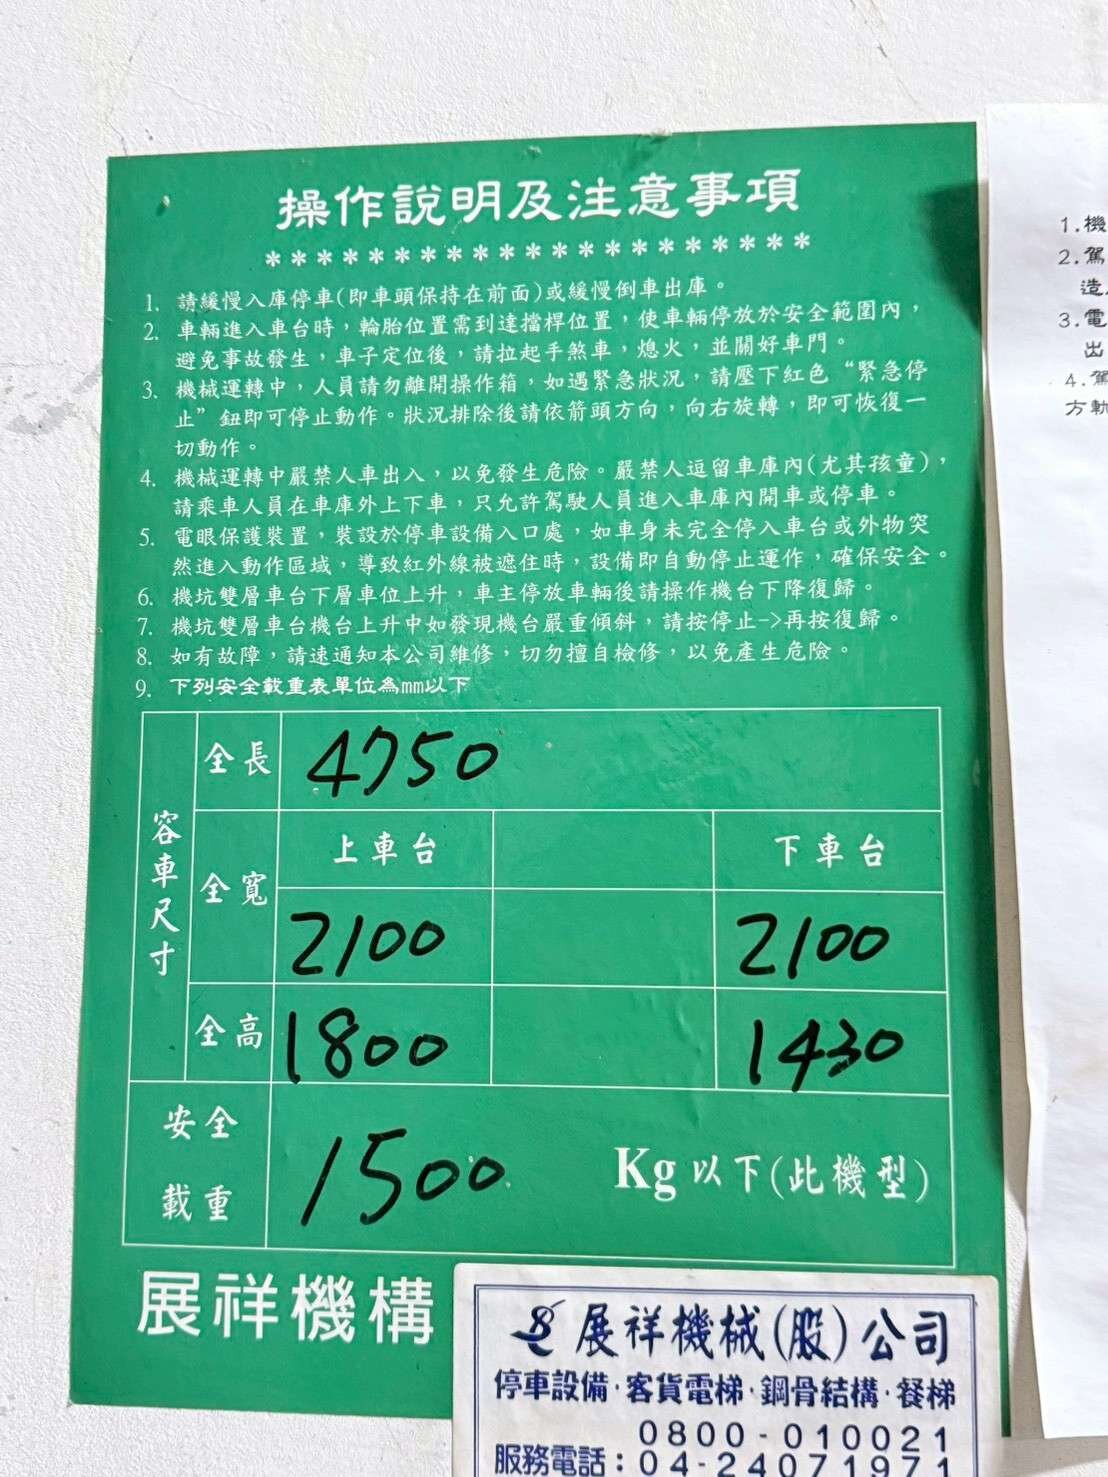 操作說明及注意事項
* * * * * * * * * * * * * * * * * * * * *
1. 請緩慢入庫停車(即車頭保持在前面)或緩慢倒車出庫。
2. 車輛進入車台時，輪胎位置需到達擋桿位置，使車輛停放於安全範圍內，
避免事故發生，車子定位後，請拉起手煞車，熄火，並關好車門。
3. 機械運轉中，人員請勿離開操作箱，如遇緊急狀況，請壓下紅色“緊急停
止”鈕即可停止動作。狀況排除後請依箭頭方向，向右旋轉，即可恢復一
切動作。
4. 機械運轉中嚴禁人車出入，以免發生危險。嚴禁人逗留車庫內(尤其孩童)，
請乘車人員在車庫外上下車，只允許駕駛人員進入車庫內開車或停車。
5. 電眼保護裝置，裝設於停車設備入口處，如車身未完全停入車台或外物突
然進入動作區域，導致紅外線被遮住時，設備即自動停止運作，確保安全。
6. 機坑雙層車台下層車位上升，車主停放車輛後請操作機台下降復歸。
7. 機坑雙層車台機台上升中如發現機台嚴重傾斜，請按停止->再按復歸。
8. 如有故障，請速通知本公司維修，切勿擅自檢修，以免產生危險。
9. 下列安全載重表單位為mm以下
容車尺寸
全長 4750
上車台 下車台
全寬 2100 2100
全高 1800 1430
安全
載重 1500 Kg以下(此機型)
展祥機構
展祥機械(股)公司
停車設備·客貨電梯·鋼骨結構·餐梯
0800-010021
服務電話：04-24071971
1.機
2.駕
造
3.電
出
4.駕
方軌